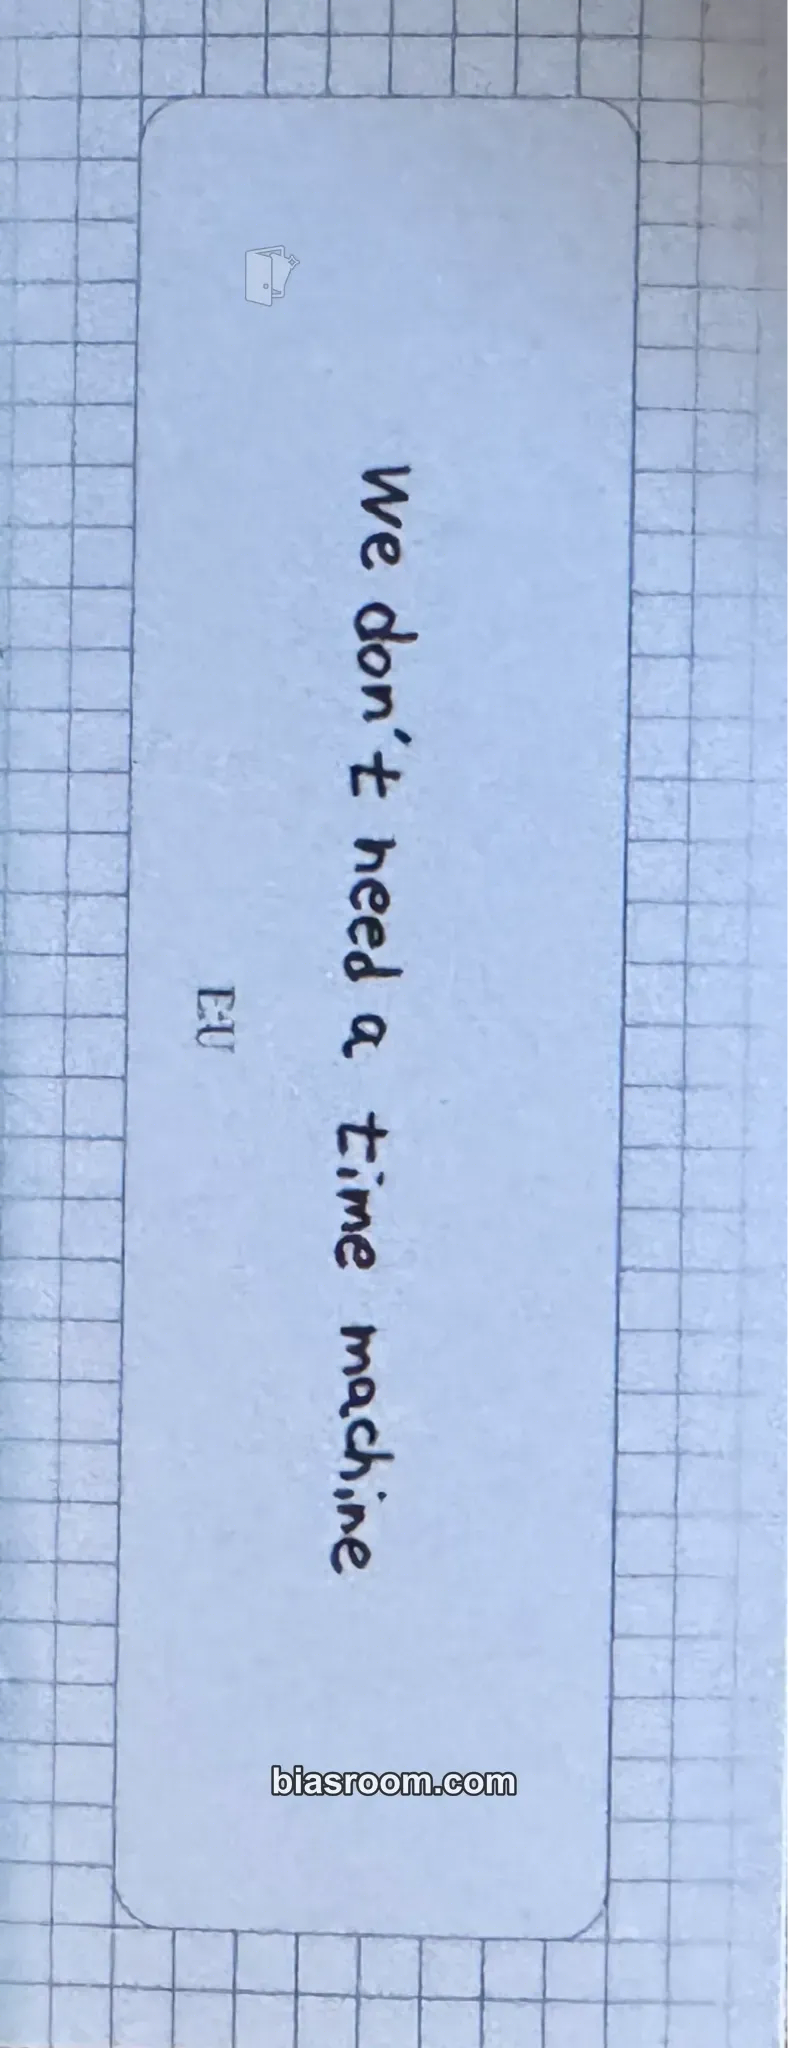 We don't need a time machine
biasroom.com